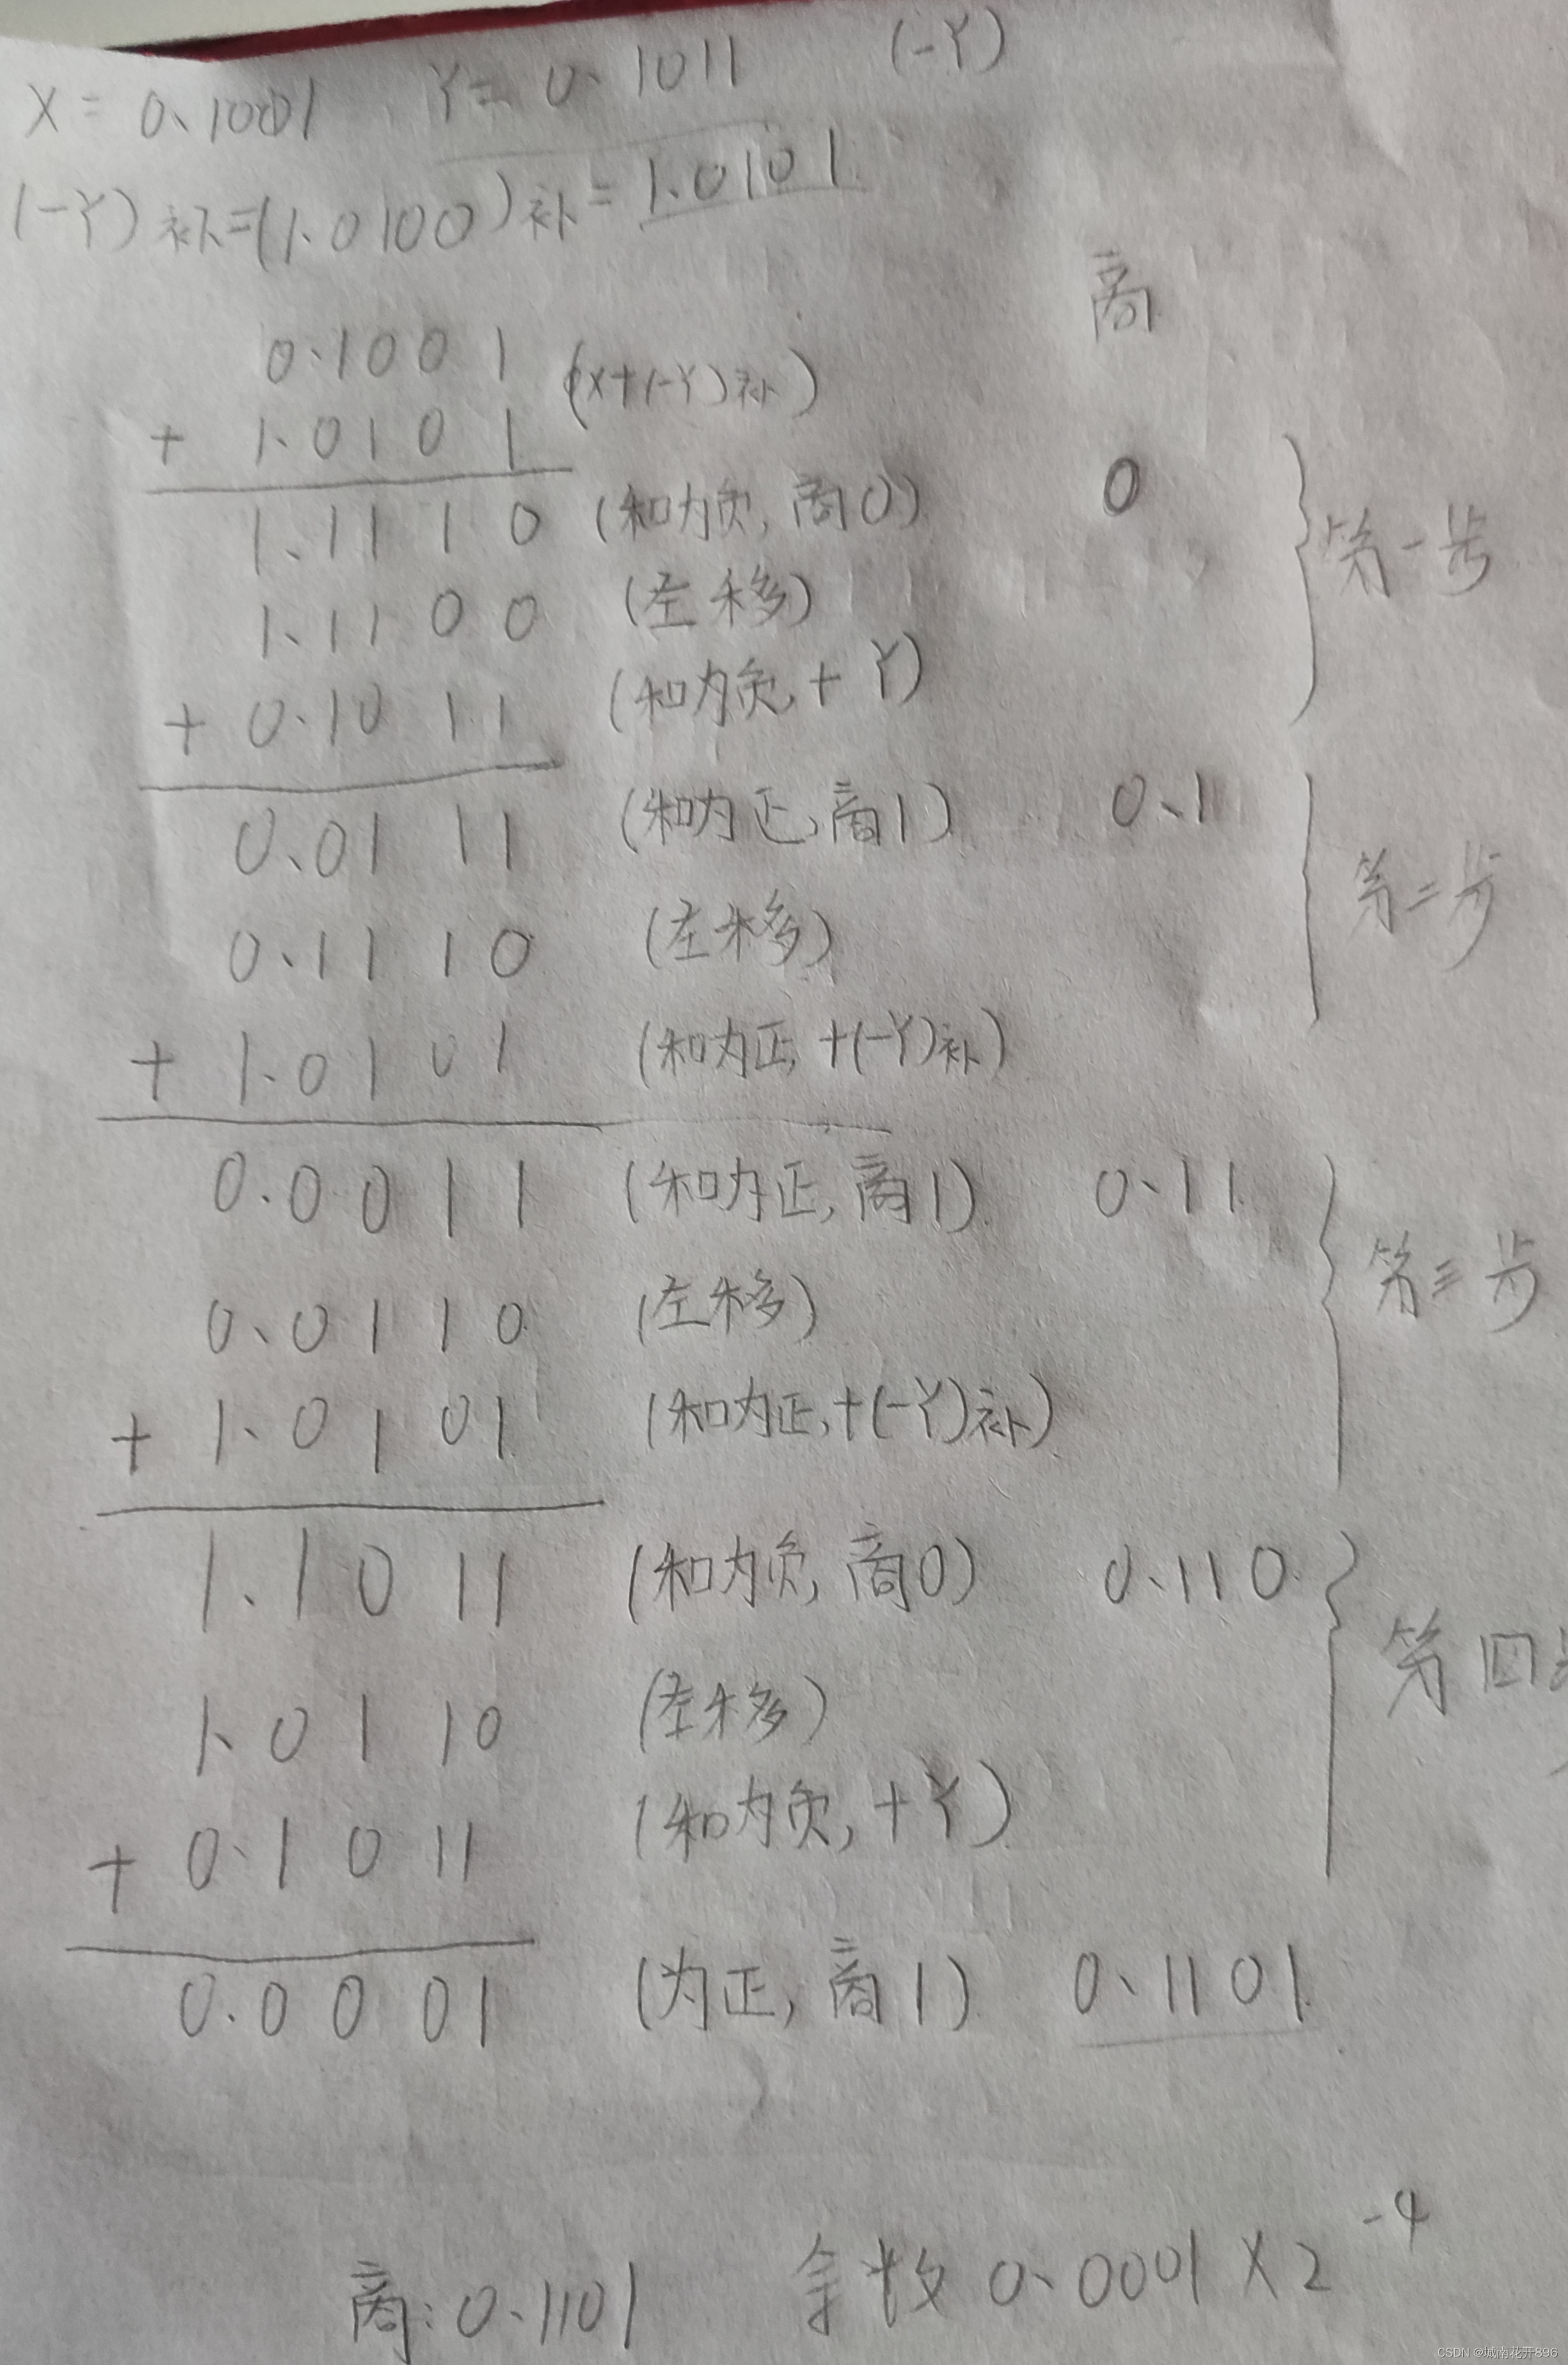 X = 0.1001 Y = 0.1011 (-Y)
(-Y)补=(1.0100)补=1.0101
商
0.1001 (X+(-Y)补)
+ 1.0101
1.1110 (和为负,商0) 0
第一步
1.1100 (左移)
+ 0.1011 (和为负,+Y)
0.0111 (和为正,商1) 0.1
第二步
0.1110 (左移)
+ 1.0101 (和为正,+(-Y)补)
0.0011 (和为正,商1) 0.11
第三步
0.0110 (左移)
+ 1.0101 (和为正,+(-Y)补)
1.1011 (和为负,商0) 0.110
第四步
1.0110 (左移)
+ 0.1011 (和为负,+Y)
0.0001 (为正,商1) 0.1101
商:0.1101 余数 0.0001 X 2^-4
CSDN @城南花开896